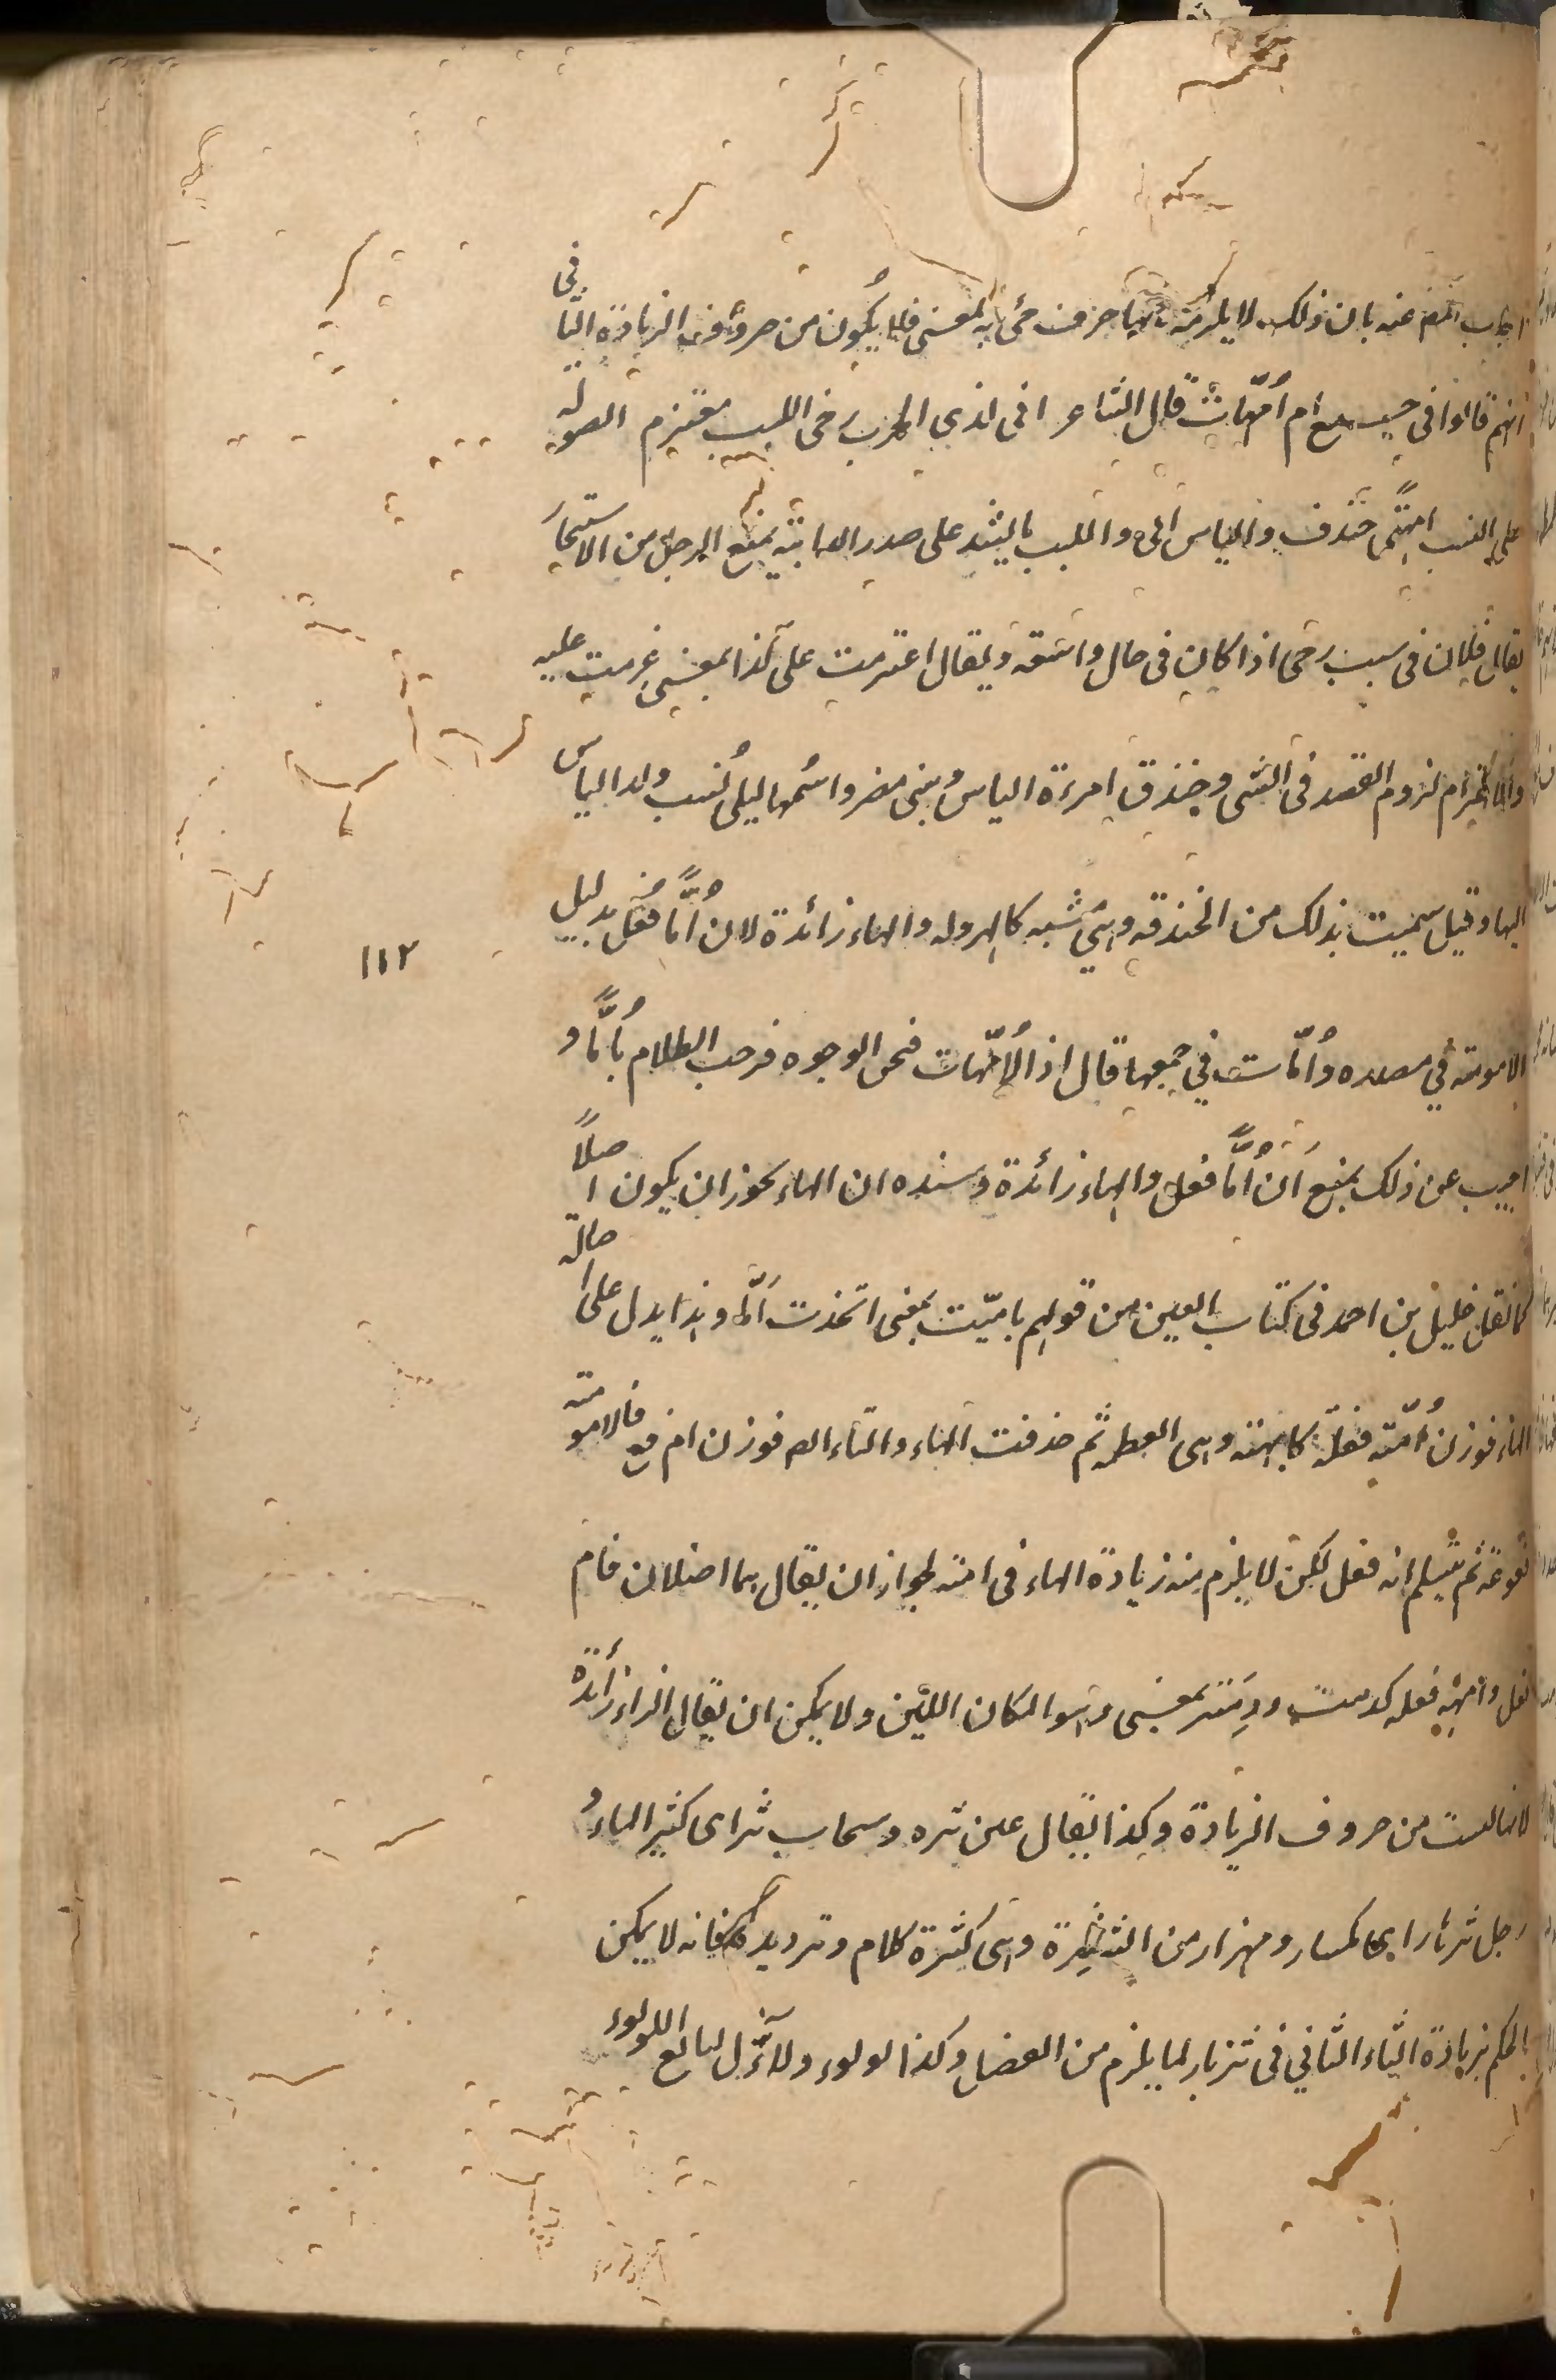 اجاب المص عنه بان ذلك لا يلزمه بانها حرف جئ به لمعنى فلا يكون من حروف الزيادة الثانى
انهم قالوا فى جمع ام امّهات قال الشاعر انى لذى الحرب رخى اللبب معتزم الصولة
على النسب امهتى خندف والياس ابى واللبب بالشد على صدر الدابة يمنع الرحل من الاستيخار
يقال فلان فى سبب رخى اذا كان فى حال واسعة ويقال اعتزمت على كذا بمعنى عزمت عليه
والاعتزام لزوم القصد فى الشى وخندق امرءة الياس بنى مضر واسمها ليلى نسب ولد الياس
اليها وقيل سميت بذلك من الخندقه وهى مشيه كالهروله والهاء زائدة لان امًّا فعل بدليل
الامومة في مصدره وامّات في جمعها قال اذ الامّهات قبحن الوجوه فرجت الظلام بامّا و
اجيب عن ذلك بمنع ان امًّا فعل والهاء زائدة وسنده ان الهاء يجوز ان يكون اصلاً
لما نقل خليل بن احمد فى كتاب العين من قولهم تاميّت بمعنى اتخذت امّا وهذا يدل على اصالة
الهاء فوزن امّهة فعلّة كابهة وهى العظمة ثم حذفت الهاء والتاء الص فوزن ام فع فالامومة
فعوعة ثم سلم انه فعل لكن لا يلزم منه زيادة الهاء فى امهة لجواز ان يقال هما اصلان فام
فعل وامهة فعله كدمث ودمثر بمعنى وهو المكان اللين ولا يمكن ان يقال الراء زائدة
لانها ليست من حروف الزيادة وكذا يقال عين ثره وسحاب ثر اى كثير الماء و
رجل ثرثار اى مكسار ومهزار من الثرثرة وهى كثرة كلام وترديده فانه لا يمكن
الحكم بزيادة الثاء الثاني فى ثرثار لما يلزم من الفصل وكذا لولوء ولاّل لبائع اللولوء
١١٢